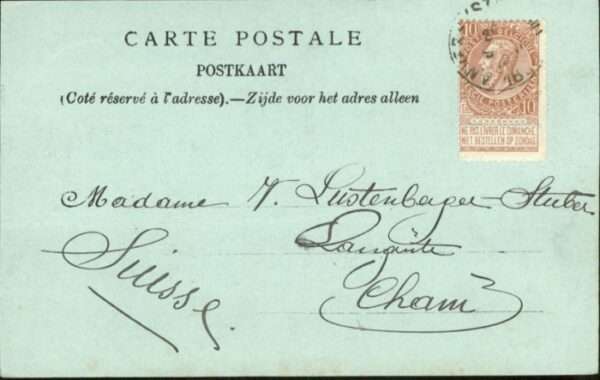 CARTE POSTALE
POSTKAART
(Coté réservé à l'adresse).—Zijde voor het adres alleen
10 10
10
NE PAS LIVRER LE DIMANCHE
NIET BESTELLEN OP ZONDAG
Madame V. Lustenberger-Stuber
Langrüti
Cham
Suisse.